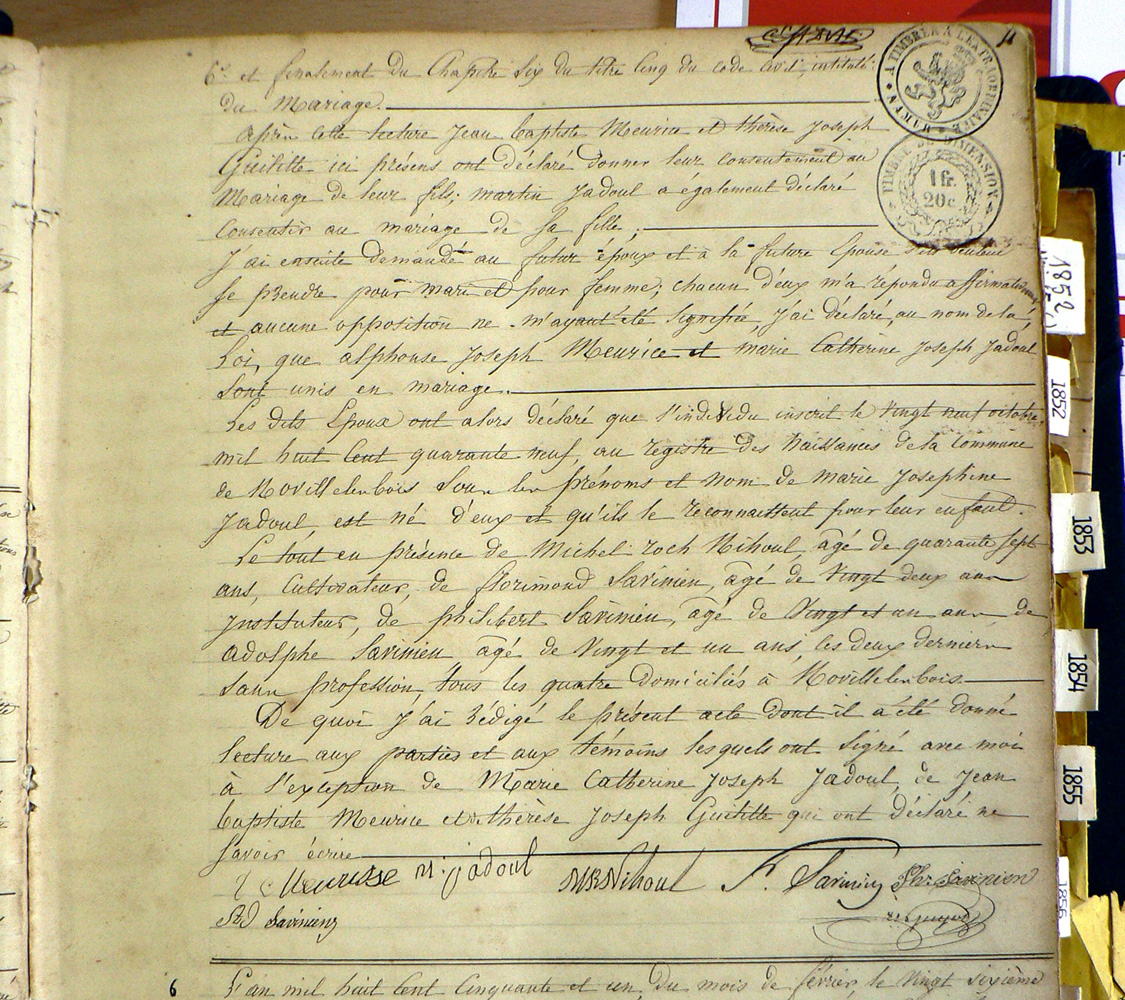 11
6° et finalement du Chapitre Six du titre Cinq du code Civil, intitulé:
du Mariage.
Après Cette lecture Jean baptiste Meurice et thérèse Joseph
Guilitte ici présens ont déclaré donner leur consentement au
Mariage de leur fils; martin Jadoul a également déclaré
Consentir au mariage de Sa fille,
J'ai ensuite demandé au futur époux et à la future Epouse s'ils veulent
Se prendre pour mari et pour femme; chacun d'eux m'a répondu affirmativement
et aucune opposition ne m'ayant été Signifiée J'ai déclaré, au nom de la
Loi, que alphonse Joseph Meurice et marie Catherine Joseph Jadoul
Sont unis en mariage.
Les dits Epoux ont alors déclaré que l'individu inscrit le Vingt neuf octobre
mil huit Cent quarante neuf, au registre des Naissances de la Commune
de Novillelenbois Sous les prénoms et nom de marie Josephine
Jadoul, est né d'eux et qu'ils le reconnaissent pour leur enfant.
Le tout en présence de Michel roch Nihoul, âgé de quarante Sept
ans, Cultivateur, de florimond Savinien, âgé de Vingt deux ans
Instituteur, de philibert Savinien, âgé de Vingt et un ans de
adolphe Savinien âgé de Vingt et un ans, les deux derniers
Sans profession, tous les quatre domiciliés à Novillelenbois.
De quoi J'ai rédigé le présent acte dont il a été donné
lecture aux parties et aux témoins lesquels ont Signé avec moi
à l'exception de Marie Catherine Joseph Jadoul, de Jean
baptiste Meurice et thérèse Joseph Guilitte qui ont déclaré ne
Savoir écrire
Meurisse M: jadoul MRNihoul F. Savinien Ph: Savinien
Ad Savinien
6 L'an mil huit Cent Cinquante et un, du mois de février, le Vingt Sixième
A TIMBRER A L'EXTRAORDINAIRE
TIMBRE DE DIMENSION
1 fr.
20 c.
1852
1852
1853
1854
1855
1856